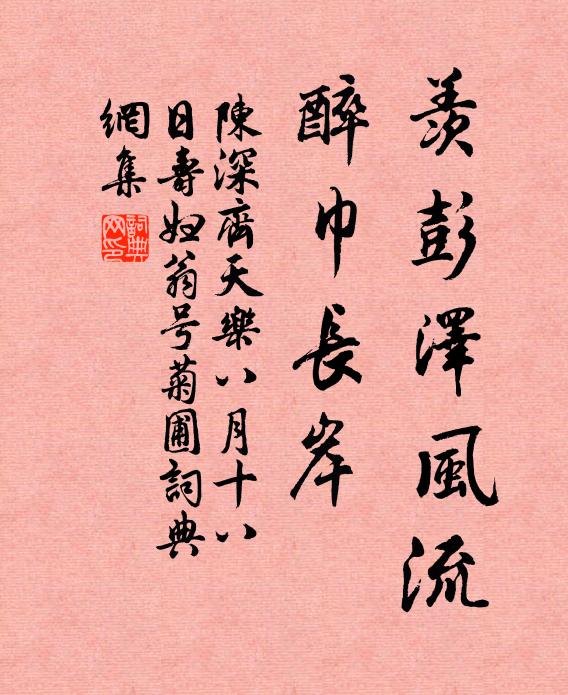 羨彭澤風流
醉巾長岸
陳深齊天樂八月十八
日壽妇翁号菊圃詞典
網集
詞典網印